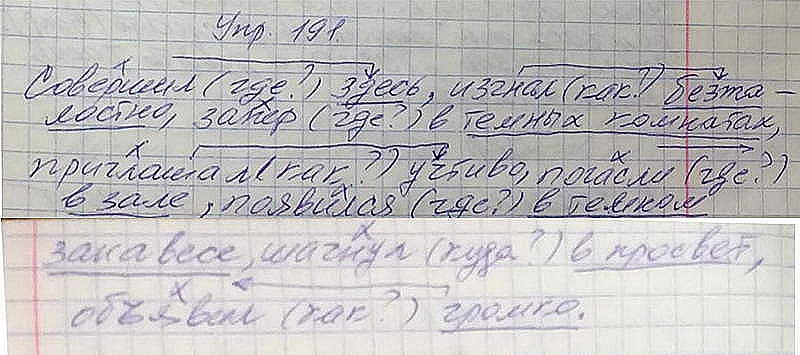 Упр. 191.
Совершил (где?) здесь, изгнал (как?) безжа-
лостно, запер (где?) в темных комнатах,
приглашал (как?) учтиво, погасли (где?)
в зале, появился (где?) в темном
занавесе, шагнул (куда?) в просвет,
объявил (как?) громко.